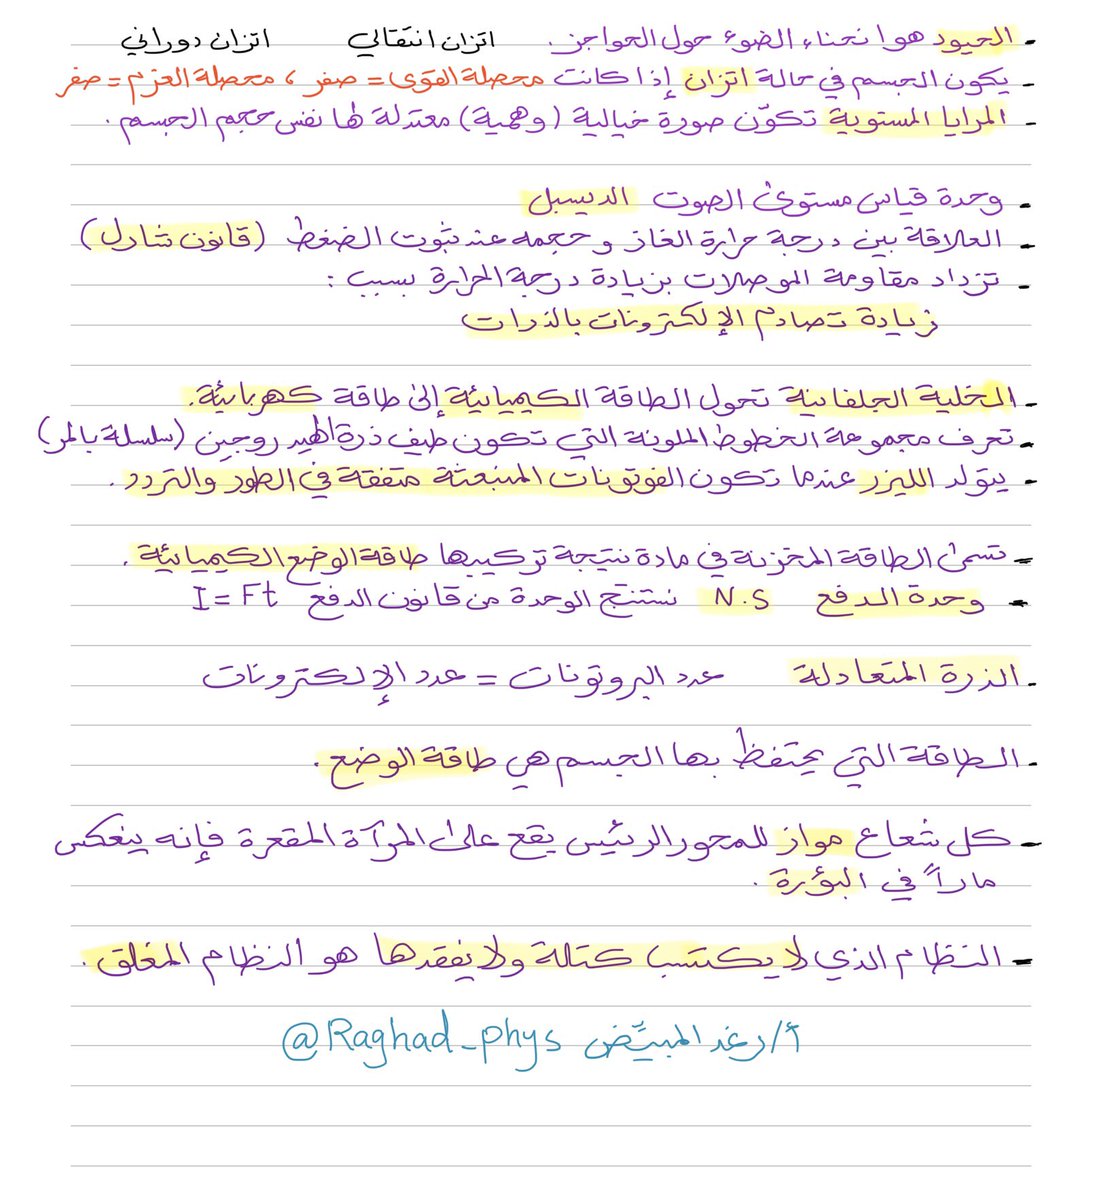 - الحيود هو انحناء الضوء حول الحواجز. اتزان انتقالي اتزان دوراني
- يكون الجسم في حالة اتزان إذا كانت محصلة القوى = صفر ، محصلة العزم = صفر
- المرايا المستوية تكوّن صورة خيالية (وهمية) معتدلة لها نفس حجم الجسم.
- وحدة قياس مستوى الصوت الديسبل
- العلاقة بين درجة حرارة الغاز و حجمه عند ثبوت الضغط (قانون شارل)
- تزداد مقاومة الموصلات بزيادة درجة الحرارة بسبب :
زيادة تصادم الإلكترونات بالذرات
- الخلية الجلفانية تحول الطاقة الكيميائية إلى طاقة كهربائية.
- تعرف مجموعة الخطوط الملونة التي تكون طيف ذرة الهيدروجين (سلسلة بالمر)
- يتولد الليزر عندما تكون الفوتونات المنبعثة متفقة في الطور والتردد.
- تسمى الطاقة المختزنة في مادة نتيجة تركيبها طاقة الوضع الكيميائية.
- وحدة الدفع N.S نستنتج الوحدة من قانون الدفع I = Ft
- الذرة المتعادلة عدد البروتونات = عدد الإلكترونات
- الطاقة التي يحتفظ بها الجسم هي طاقة الوضع.
- كل شعاع مواز للمحور الرئيس يقع على المرآة المقعرة فإنه ينعكس
ماراً في البؤرة.
- النظام الذي لا يكتسب كتلة ولا يفقدها هو النظام المغلق.
أ/رغد المبيّض @Raghad_phys